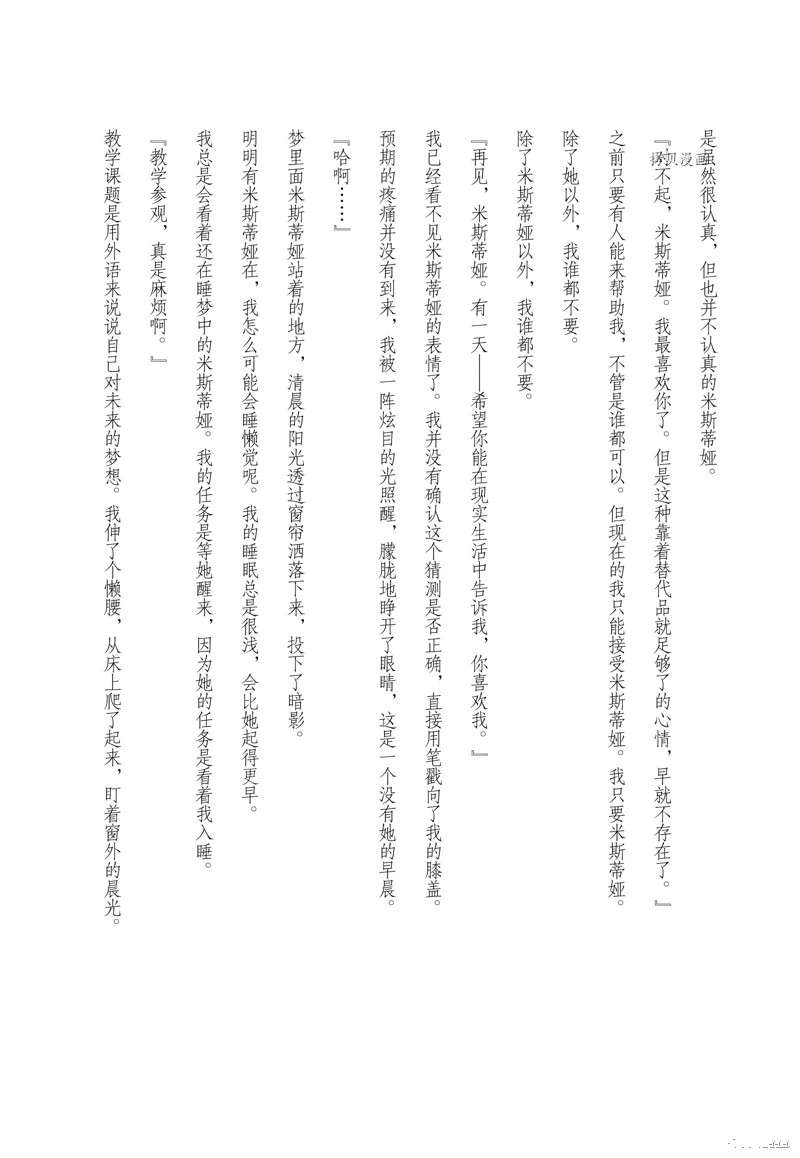 是虽然很认真，但也并不认真的米斯蒂娅。
『对不起，米斯蒂娅。我最喜欢你了。但是这种靠着替代品就足够了的心情，早就不存在了。』
之前只要有人能来帮助我，不管是谁都可以。但现在的我只能接受米斯蒂娅。我只要米斯蒂娅。
除了她以外，我谁都不要。
除了米斯蒂娅以外，我谁都不要。
『再见，米斯蒂娅。有一天——希望你能在现实生活中告诉我，你喜欢我。』
我已经看不见米斯蒂娅的表情了。我并没有确认这个猜测是否正确，直接用笔戳向了我的膝盖。
预期的疼痛并没有到来，我被一阵炫目的光照醒，朦胧地睁开了眼睛，这是一个没有她的早晨。
『哈啊……』
梦里面米斯蒂娅站着的地方，清晨的阳光透过窗帘洒落下来，投下了暗影。
明明有米斯蒂娅在，我怎么可能会睡懒觉呢。我的睡眠总是很浅，会比她起得更早。
我总是会看着还在睡梦中的米斯蒂娅。我的任务是等她醒来，因为她的任务是看着我入睡。
『教学参观，真是麻烦啊。』
教学课题是用外语来说说自己对未来的梦想。我伸了个懒腰，从床上爬了起来，盯着窗外的晨光。
拷贝漫画